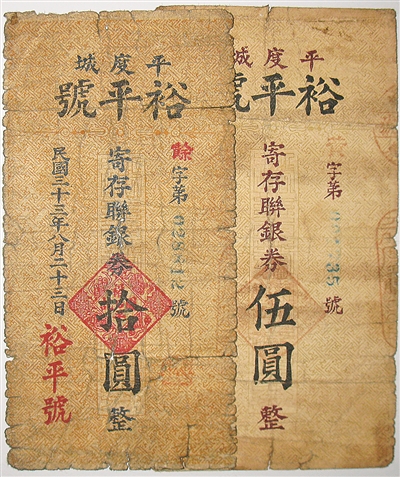 平度城
裕平號
餘字第 號
寄存聯銀券拾圓整
民國三十三年八月二十三日
裕平號
平度城
裕平號
字第 35 號
寄存聯銀券伍圓整